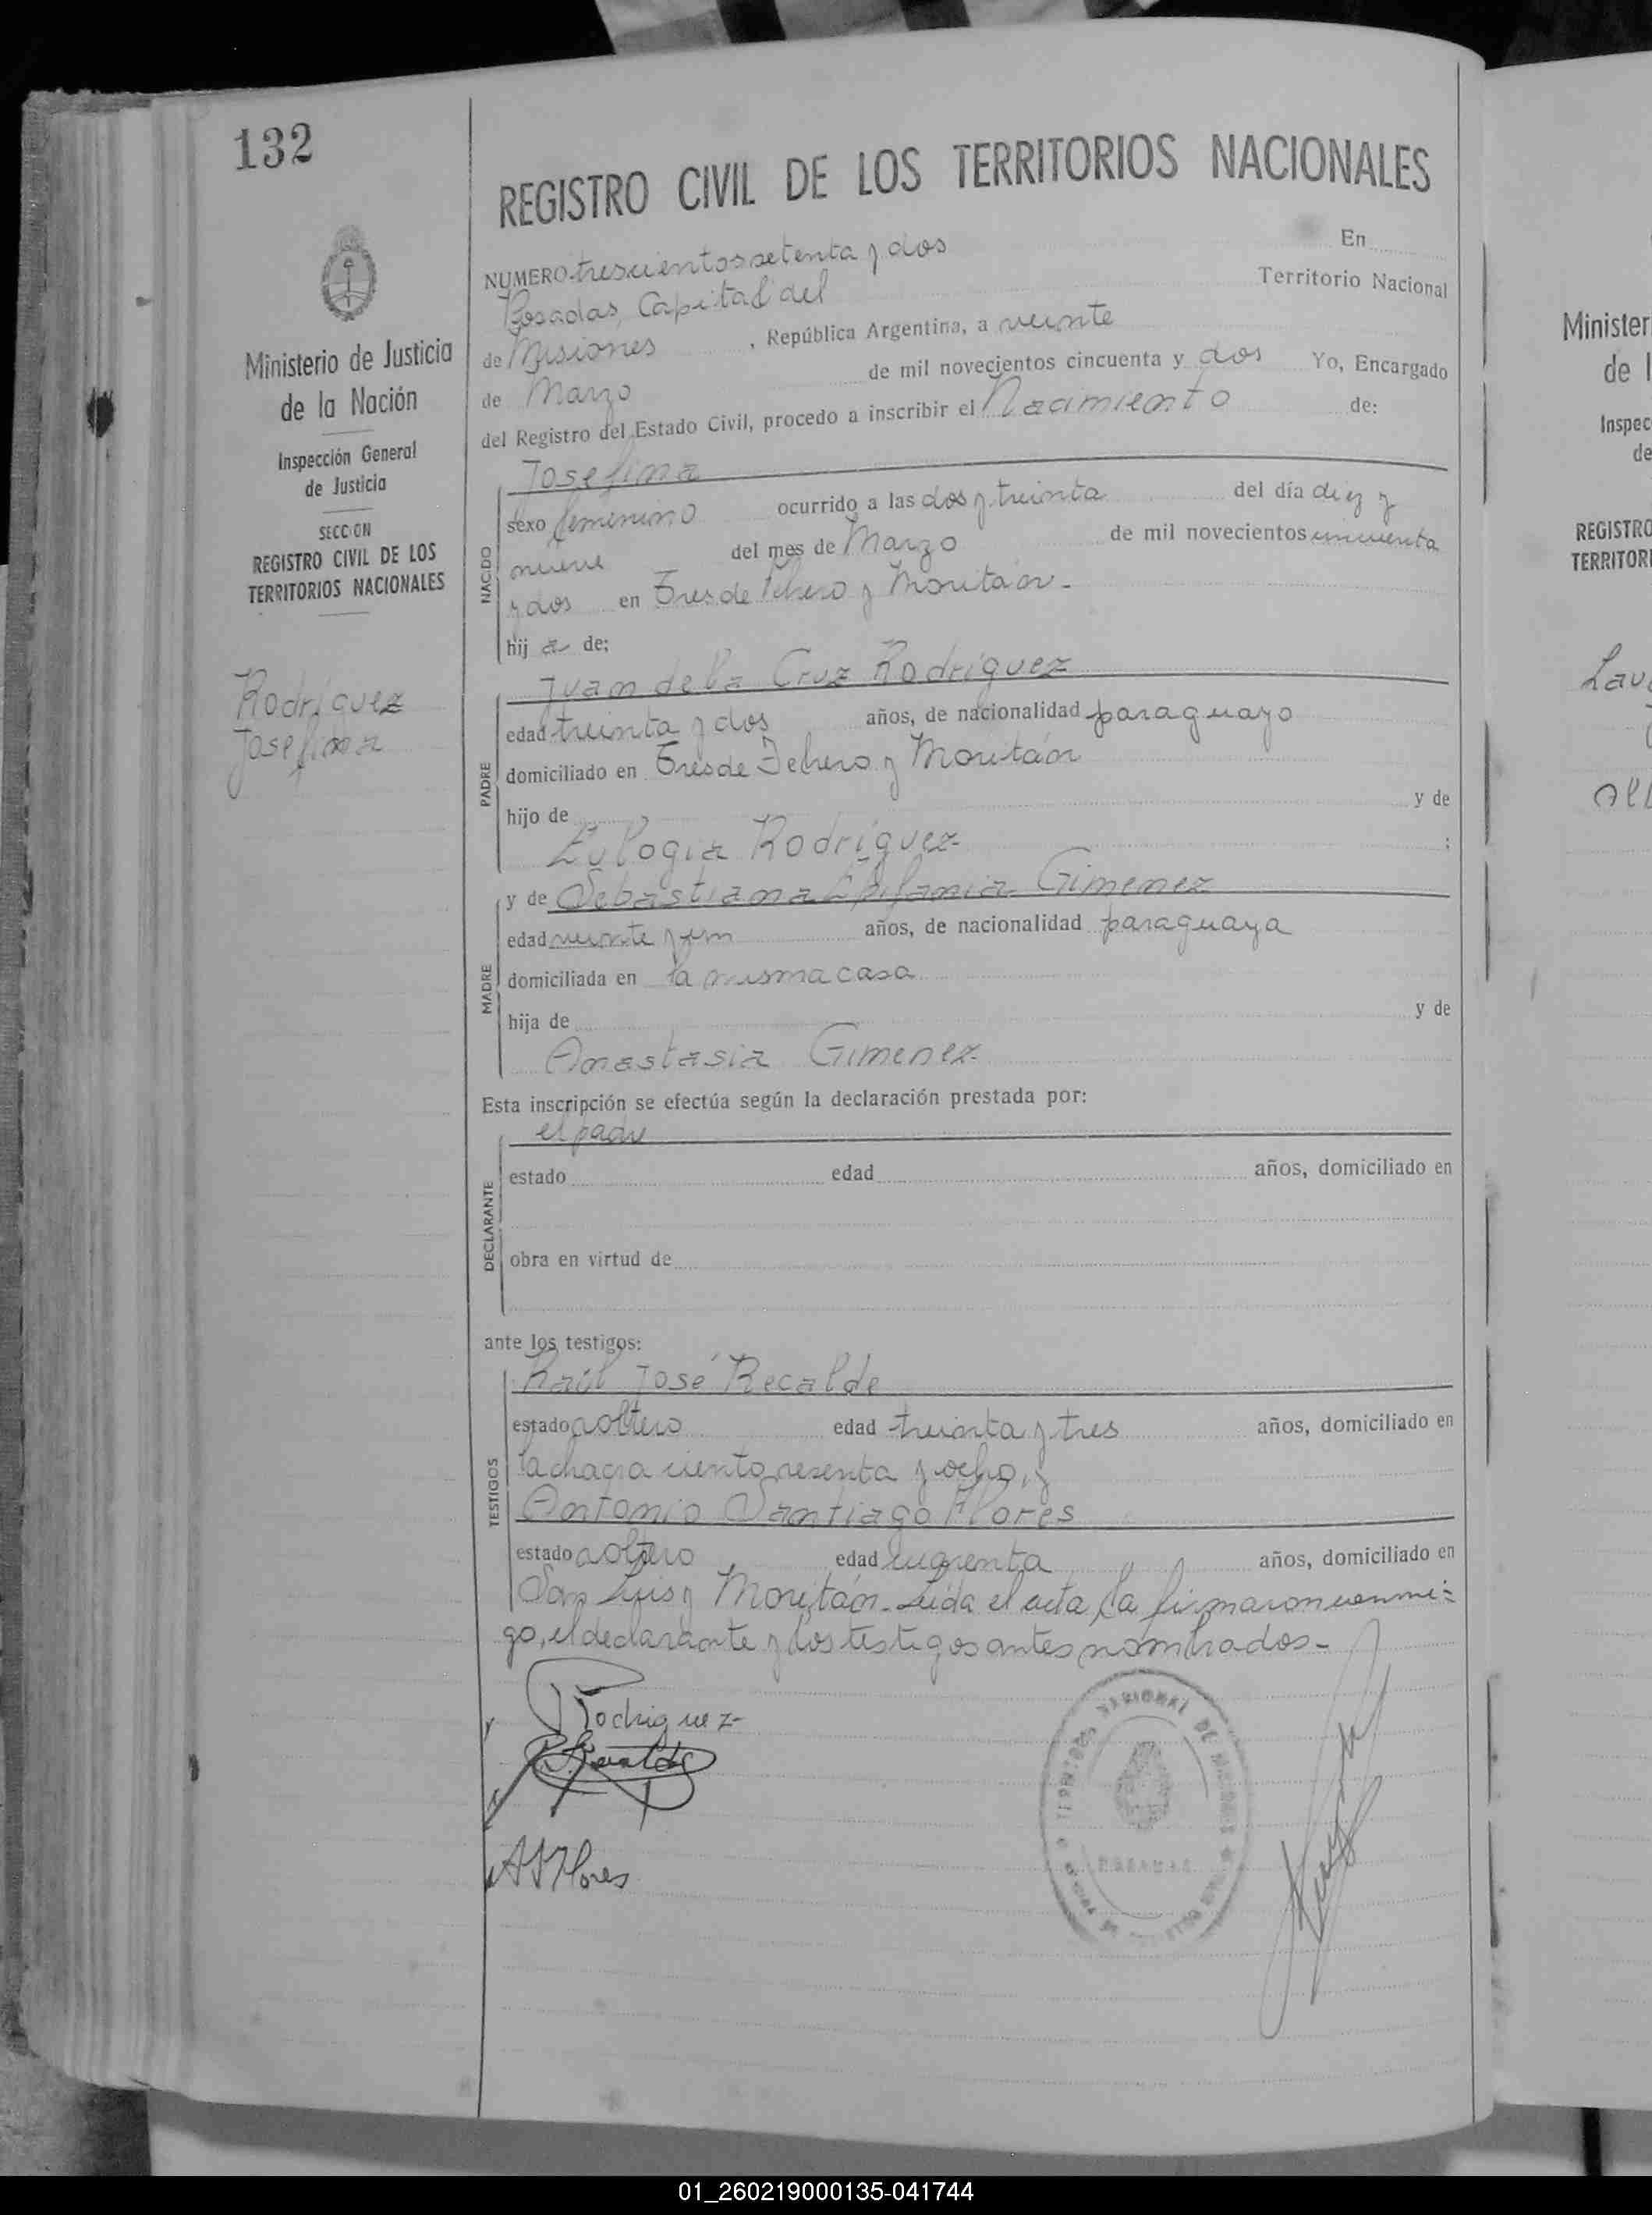 132
Ministerio de Justicia
de la Nación
Inspección General
de Justicia
SECCION
REGISTRO CIVIL DE LOS
TERRITORIOS NACIONALES
Rodríguez
Josefina
REGISTRO CIVIL DE LOS TERRITORIOS NACIONALES
NUMERO trescientos setenta y dos En
Posadas, Capital del Territorio Nacional
de Misiones, República Argentina, a veinte
de Marzo de mil novecientos cincuenta y dos Yo, Encargado
del Registro del Estado Civil, procedo a inscribir el Nacimiento de:
NACIDO
Josefina
sexo femenino ocurrido a las dos y treinta del día diez y
nueve del mes de Marzo de mil novecientos cincuenta
y dos en Tres de Febrero y Moritán-
hij a de:
PADRE
Juan de la Cruz Rodríguez
edad treinta y dos años, de nacionalidad paraguayo
domiciliado en Tres de Febrero y Moritán
hijo de y de
Eulogia Rodríguez- ;
MADRE
y de Sebastiana Epifania Gimenez
edad veinte y un años, de nacionalidad paraguaya
domiciliada en la misma casa
hija de y de
Anastasia Gimenez-
Esta inscripción se efectúa según la declaración prestada por:
DECLARANTE
el padre
estado edad años, domiciliado en
obra en virtud de
ante los testigos:
TESTIGOS
Raúl José Recalde
estado soltero edad treinta y tres años, domiciliado en
la chacra ciento sesenta y ocho, y
Antonio Santiago Flores
estado soltero edad cuarenta años, domiciliado en
San Luis y Moritán- Leída el acta, la firmaron conmi=
go, el declarante y los testigos antes nombrados-
Rodriguez-
R.J.Recalde
ASFlores
POSADAS
Minister
de l
Inspec
de
REGISTRO
TERRITORI
01_260219000135-041744